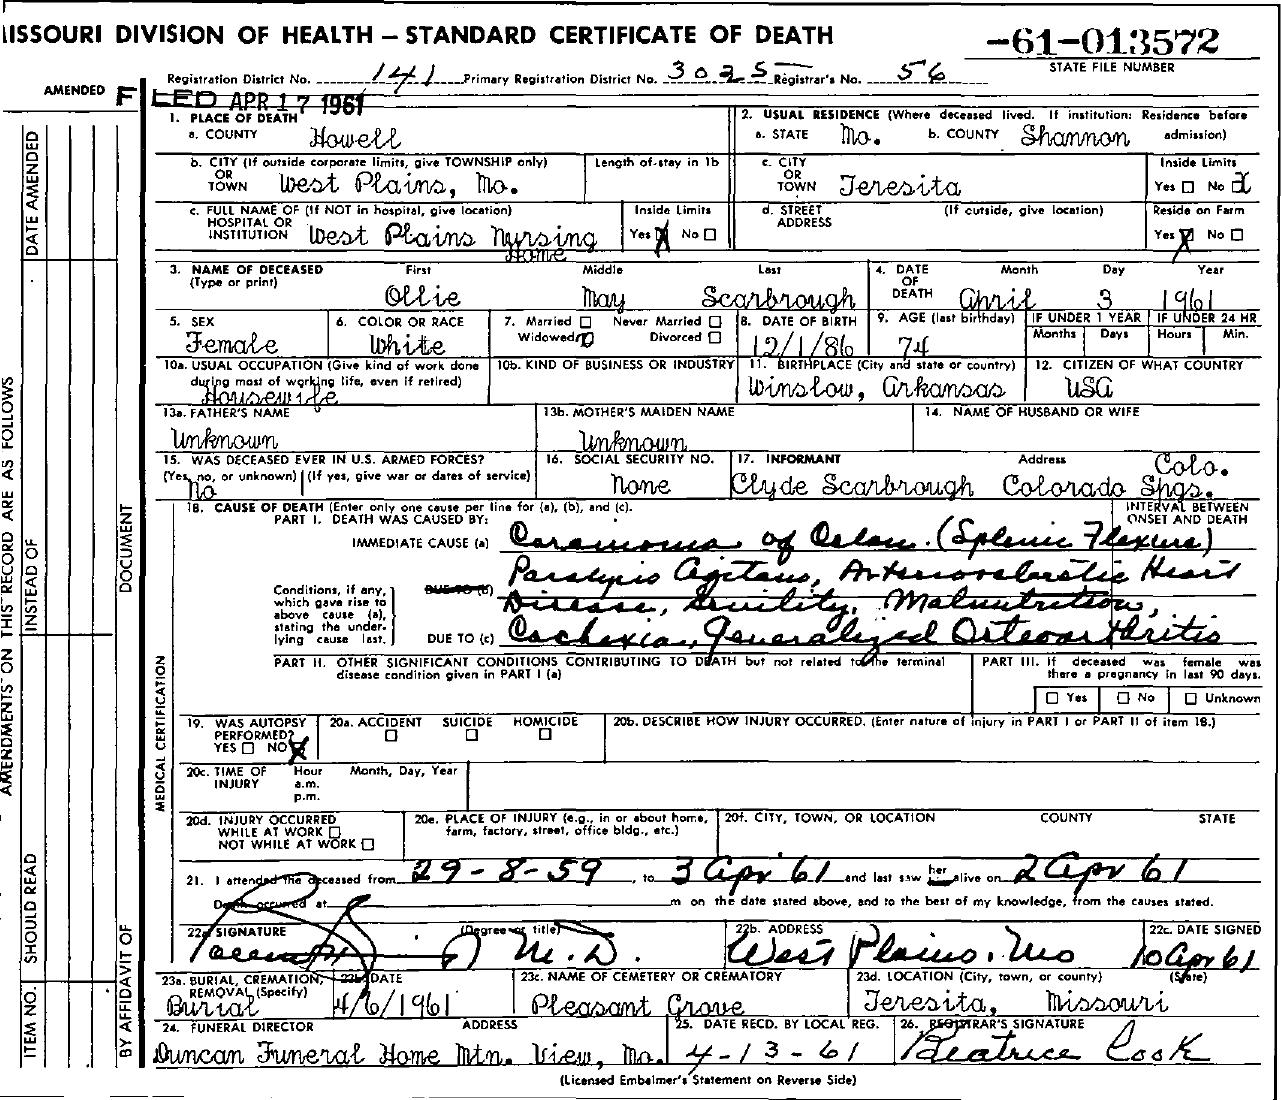 MISSOURI DIVISION OF HEALTH – STANDARD CERTIFICATE OF DEATH
-61-013572
STATE FILE NUMBER
Registration District No. 141 Primary Registration District No. 3025 Registrar's No. 56
AMENDED
FILED APR 17 1961
1. PLACE OF DEATH
a. COUNTY Howell
2. USUAL RESIDENCE (Where deceased lived. If institution: Residence before admission)
a. STATE Mo. b. COUNTY Shannon
b. CITY (If outside corporate limits, give TOWNSHIP only) OR TOWN West Plains, Mo.
Length of stay in 1b
c. CITY OR TOWN Teresita
Inside Limits
Yes □ No X
c. FULL NAME OF (If NOT in hospital, give location) HOSPITAL OR INSTITUTION West Plains Nursing Home
Inside Limits
Yes X No □
d. STREET ADDRESS (If outside, give location)
Reside on Farm
Yes X No □
3. NAME OF DECEASED (Type or print)
First Middle Last
Ollie May Scarbrough
4. DATE OF DEATH Month Day Year
April 3 1961
5. SEX
Female
6. COLOR OR RACE
White
7. Married □ Never Married □
Widowed X Divorced □
8. DATE OF BIRTH
12/1/86
9. AGE (last birthday)
74
IF UNDER 1 YEAR
Months Days
IF UNDER 24 HR
Hours Min.
10a. USUAL OCCUPATION (Give kind of work done during most of working life, even if retired)
Housewife
10b. KIND OF BUSINESS OR INDUSTRY
11. BIRTHPLACE (City and state or country)
Winslow, Arkansas
12. CITIZEN OF WHAT COUNTRY
USA
13a. FATHER'S NAME
Unknown
13b. MOTHER'S MAIDEN NAME
Unknown
14. NAME OF HUSBAND OR WIFE
15. WAS DECEASED EVER IN U.S. ARMED FORCES?
(Yes, no, or unknown) (If yes, give war or dates of service)
No
16. SOCIAL SECURITY NO.
None
17. INFORMANT Address
Clyde Scarbrough Colorado Spgs. Colo.
18. CAUSE OF DEATH (Enter only one cause per line for (a), (b), and (c).
PART I. DEATH WAS CAUSED BY:
INTERVAL BETWEEN ONSET AND DEATH
IMMEDIATE CAUSE (a) Carcinoma of Colon. (Splenic Flexure)
Conditions, if any, which gave rise to above cause (a), stating the underlying cause last.
DUE TO (b) Paralysis Agitans, Arteriosclerotic Heart
Disease, Senility, Malnutrition,
DUE TO (c) Cachexia, Generalized Osteoarthritis
PART II. OTHER SIGNIFICANT CONDITIONS CONTRIBUTING TO DEATH but not related to the terminal disease condition given in PART I (a)
PART III. If deceased was female was there a pregnancy in last 90 days.
□ Yes □ No □ Unknown
19. WAS AUTOPSY PERFORMED?
YES □ NO X
20a. ACCIDENT SUICIDE HOMICIDE
□ □ □
20b. DESCRIBE HOW INJURY OCCURRED. (Enter nature of injury in PART I or PART II of item 18.)
20c. TIME OF INJURY Hour a.m. p.m. Month, Day, Year
20d. INJURY OCCURRED
WHILE AT WORK □
NOT WHILE AT WORK □
20e. PLACE OF INJURY (e.g., in or about home, farm, factory, street, office bldg., etc.)
20f. CITY, TOWN, OR LOCATION COUNTY STATE
21. I attended the deceased from 29-8-59, to 3 Apr 61 and last saw her alive on 2 Apr 61
Death occurred at m on the date stated above, and to the best of my knowledge, from the causes stated.
22a. SIGNATURE (Degree or title)
M.D.
22b. ADDRESS
West Plains, Mo
22c. DATE SIGNED
10 Apr 61
23a. BURIAL, CREMATION, REMOVAL (Specify)
Burial
23b. DATE
4/6/1961
23c. NAME OF CEMETERY OR CREMATORY
Pleasant Grove
23d. LOCATION (City, town, or county) (State)
Teresita, Missouri
24. FUNERAL DIRECTOR ADDRESS
Duncan Funeral Home Mtn. View, Mo.
25. DATE RECD. BY LOCAL REG.
4-13-61
26. REGISTRAR'S SIGNATURE
Beatrice Cook
(Licensed Embalmer's Statement on Reverse Side)
AMENDMENTS ON THIS RECORD ARE AS FOLLOWS
DATE AMENDED
INSTEAD OF
DOCUMENT
SHOULD READ
ITEM NO.
BY AFFIDAVIT OF
MEDICAL CERTIFICATION